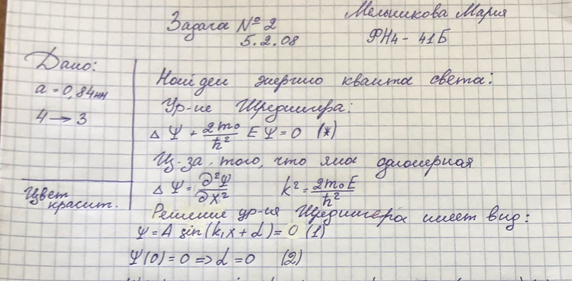 Задача № 2
Мельникова Мария
5.2.08
ФН4-41Б
Дано:
a = 0,84нм
4 → 3
Цвет
красит.
Найдем энергию кванта света:
Ур-ие Шредингера:
Δ Ψ + 2m₀/ħ² E Ψ = 0 (*)
Из-за того, что яма одномерная
Δ Ψ = ∂²Ψ/∂x² k² = 2m₀E/ħ²
Решение ур-ия Шредингера имеет вид:
Ψ = A sin(k₁x + α) = 0 (1)
Ψ(0) = 0 => α = 0 (2)